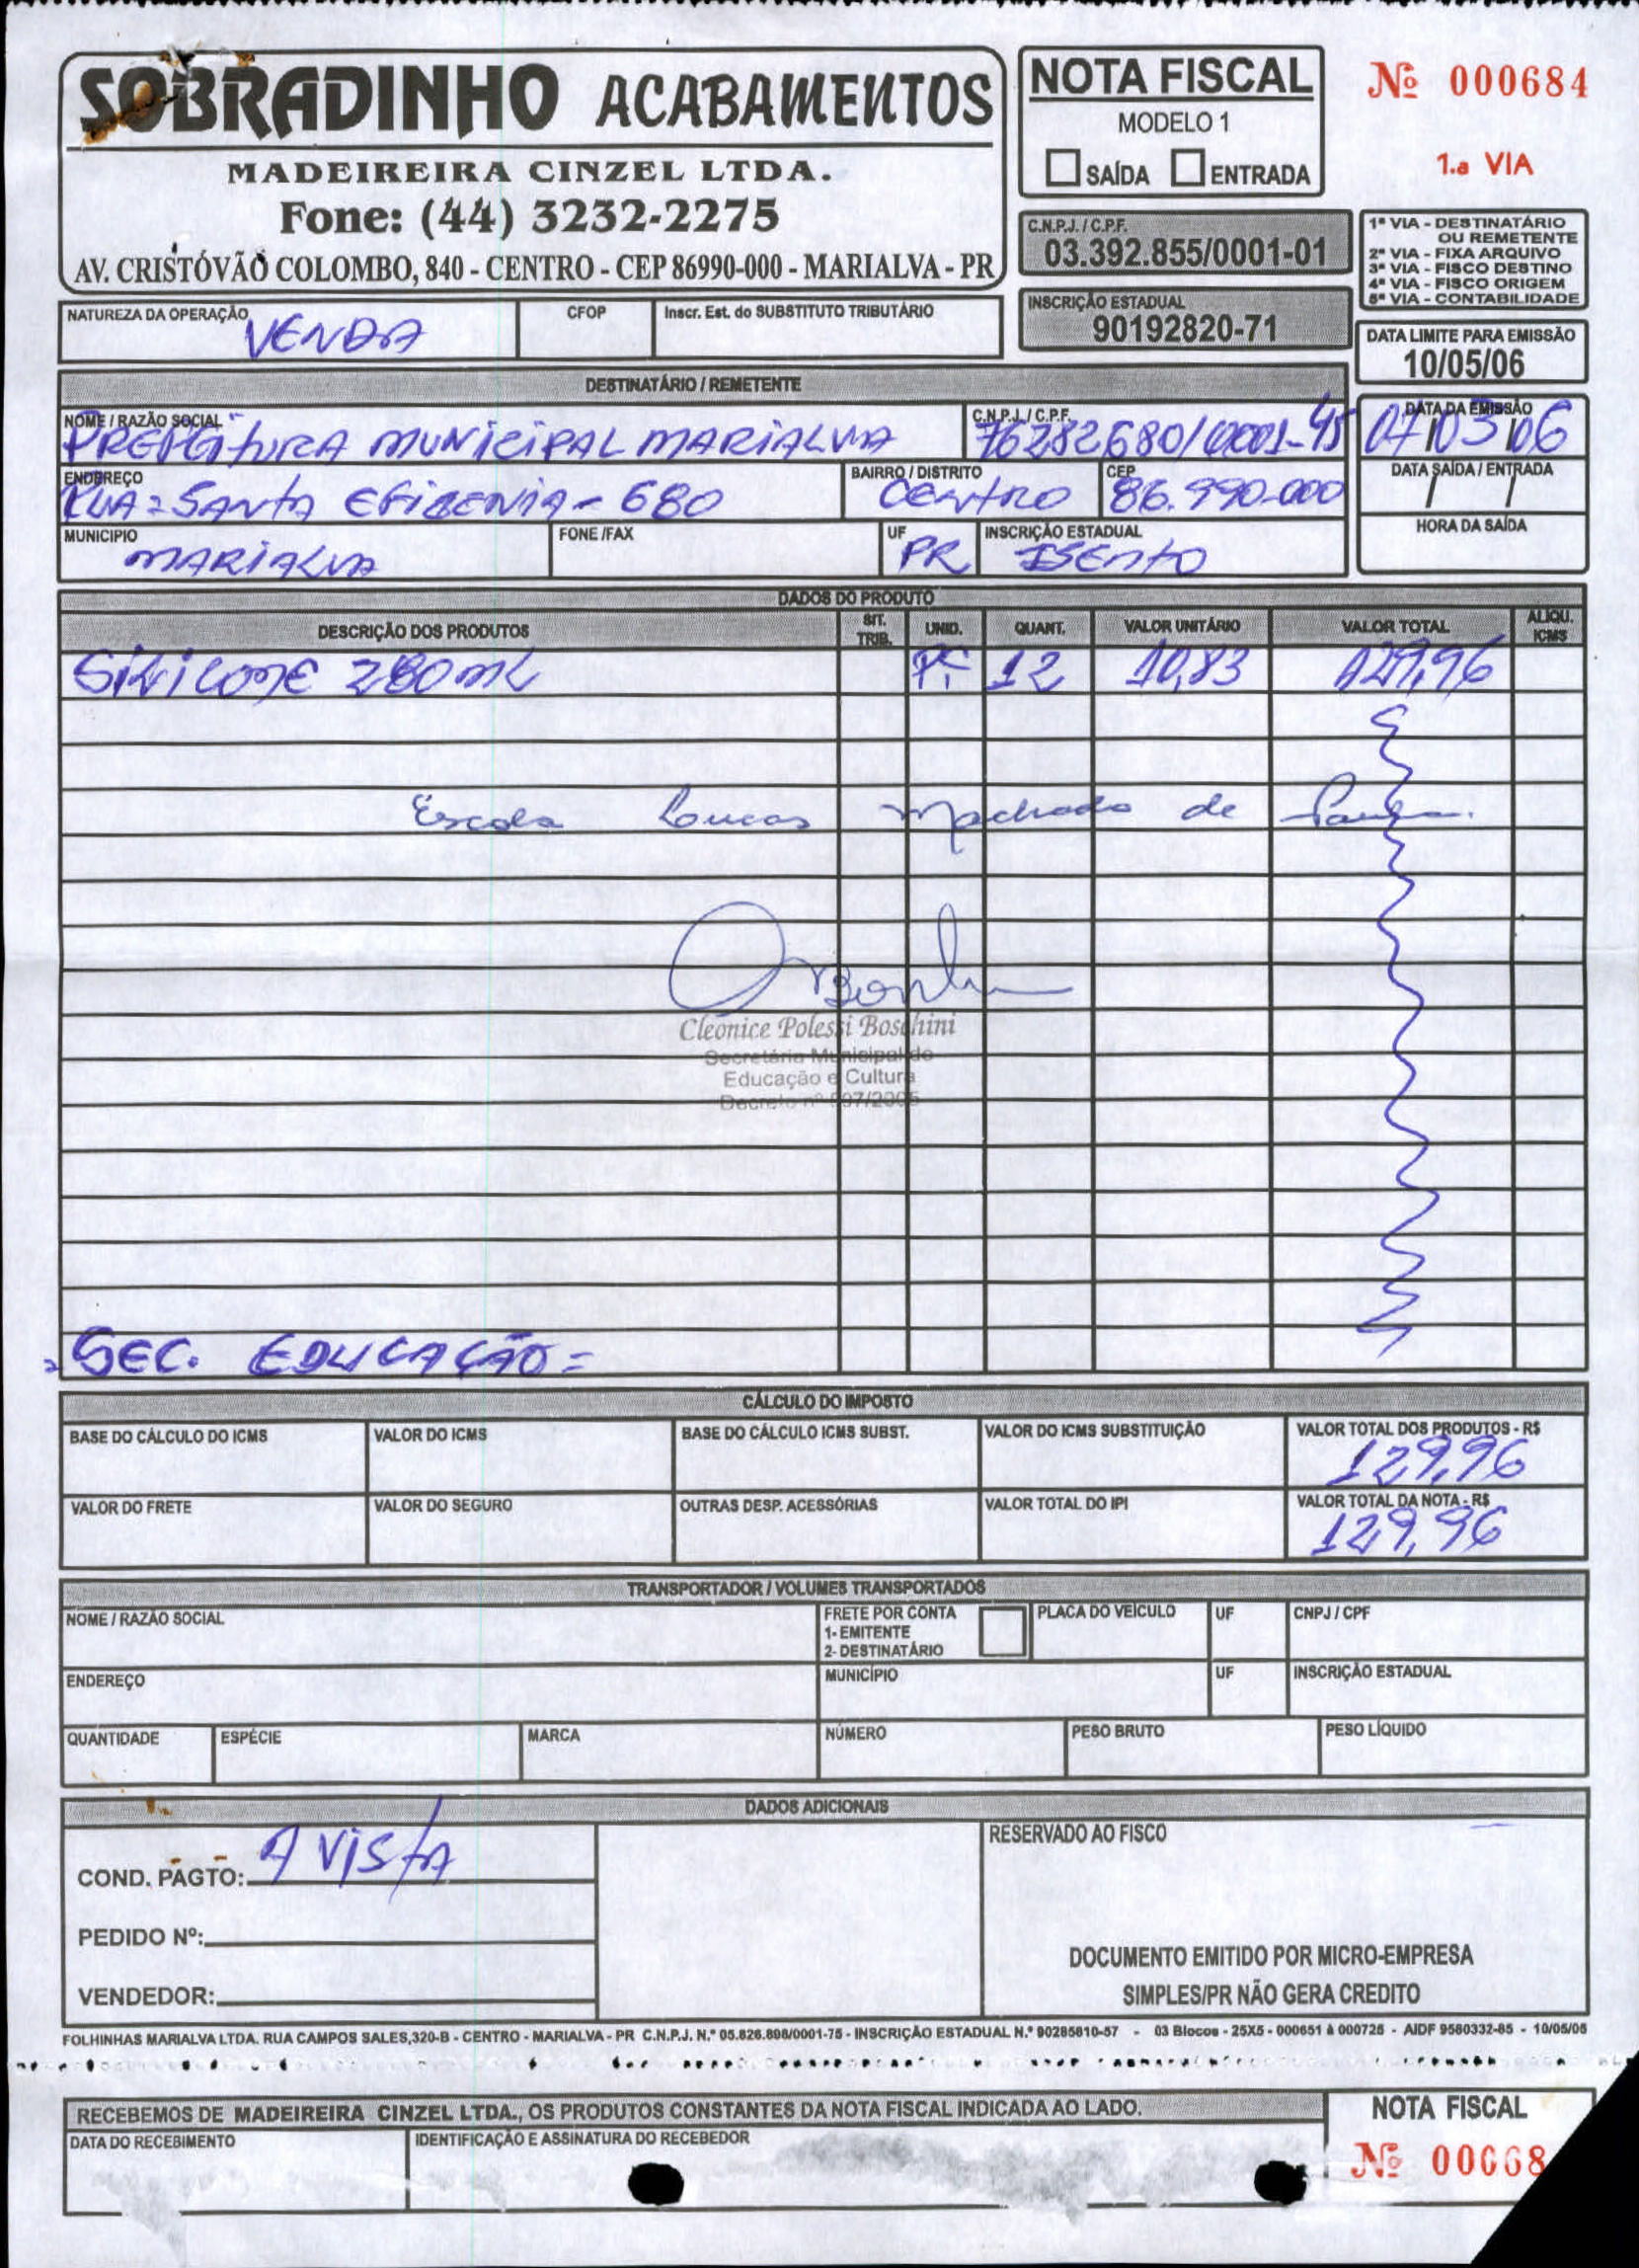 SOBRADINHO ACABAMENTOS
MADEIREIRA CINZEL LTDA.
Fone: (44) 3232-2275
AV. CRISTÓVÃO COLOMBO, 840 - CENTRO - CEP 86990-000 - MARIALVA - PR
NOTA FISCAL
MODELO 1
SAÍDA ENTRADA
Nº 000684
1.a VIA
C.N.P.J. / C.P.F.
03.392.855/0001-01
INSCRIÇÃO ESTADUAL
90192820-71
1ª VIA - DESTINATÁRIO
OU REMETENTE
2ª VIA - FIXA ARQUIVO
3ª VIA - FISCO DESTINO
4ª VIA - FISCO ORIGEM
5ª VIA - CONTABILIDADE
DATA LIMITE PARA EMISSÃO
10/05/06
NATUREZA DA OPERAÇÃO CFOP Inscr. Est. do SUBSTITUTO TRIBUTÁRIO
VENDA
DESTINATÁRIO / REMETENTE
NOME / RAZÃO SOCIAL C.N.P.J. / C.P.F. DATA DA EMISSÃO
PREFEITURA MUNICIPAL MARIALVA 76282680/0001-45 07/03/06
ENDEREÇO BAIRRO / DISTRITO CEP DATA SAÍDA / ENTRADA
RUA = SANTA EFIGENIA - 680 CENTRO 86.990-000 / /
MUNICIPIO FONE /FAX UF INSCRIÇÃO ESTADUAL HORA DA SAÍDA
MARIALVA PR ISENTO
DADOS DO PRODUTO
DESCRIÇÃO DOS PRODUTOS SIT. TRIB. UNID. QUANT. VALOR UNITÁRIO VALOR TOTAL ALIQU. ICMS
SILICONE 280ML 12 10,83 129,96
Escola Lucas Machado de
Cleonice Polessi Boschini
Secretária Municipal de
Educação e Cultura
= SEC. EDUCAÇÃO =
CÁLCULO DO IMPOSTO
BASE DO CÁLCULO DO ICMS VALOR DO ICMS BASE DO CÁLCULO ICMS SUBST. VALOR DO ICMS SUBSTITUIÇÃO VALOR TOTAL DOS PRODUTOS - R$
129,96
VALOR DO FRETE VALOR DO SEGURO OUTRAS DESP. ACESSÓRIAS VALOR TOTAL DO IPI VALOR TOTAL DA NOTA - R$
129,96
TRANSPORTADOR / VOLUMES TRANSPORTADOS
NOME / RAZÃO SOCIAL FRETE POR CONTA PLACA DO VEÍCULO UF CNPJ / CPF
1- EMITENTE
2- DESTINATÁRIO
ENDEREÇO MUNICÍPIO UF INSCRIÇÃO ESTADUAL
QUANTIDADE ESPÉCIE MARCA NÚMERO PESO BRUTO PESO LÍQUIDO
DADOS ADICIONAIS
COND. PAGTO: A VISTA
PEDIDO Nº:
VENDEDOR:
RESERVADO AO FISCO
DOCUMENTO EMITIDO POR MICRO-EMPRESA
SIMPLES/PR NÃO GERA CREDITO
FOLHINHAS MARIALVA LTDA. RUA CAMPOS SALES,320-B - CENTRO - MARIALVA - PR C.N.P.J. N.º 05.826.898/0001-75 - INSCRIÇÃO ESTADUAL N.º 90285810-57 - 03 Blocos - 25X5 - 000651 à 000725 - AIDF 9560332-85 - 10/05/05
RECEBEMOS DE MADEIREIRA CINZEL LTDA., OS PRODUTOS CONSTANTES DA NOTA FISCAL INDICADA AO LADO.
DATA DO RECEBIMENTO IDENTIFICAÇÃO E ASSINATURA DO RECEBEDOR
NOTA FISCAL
Nº 00068